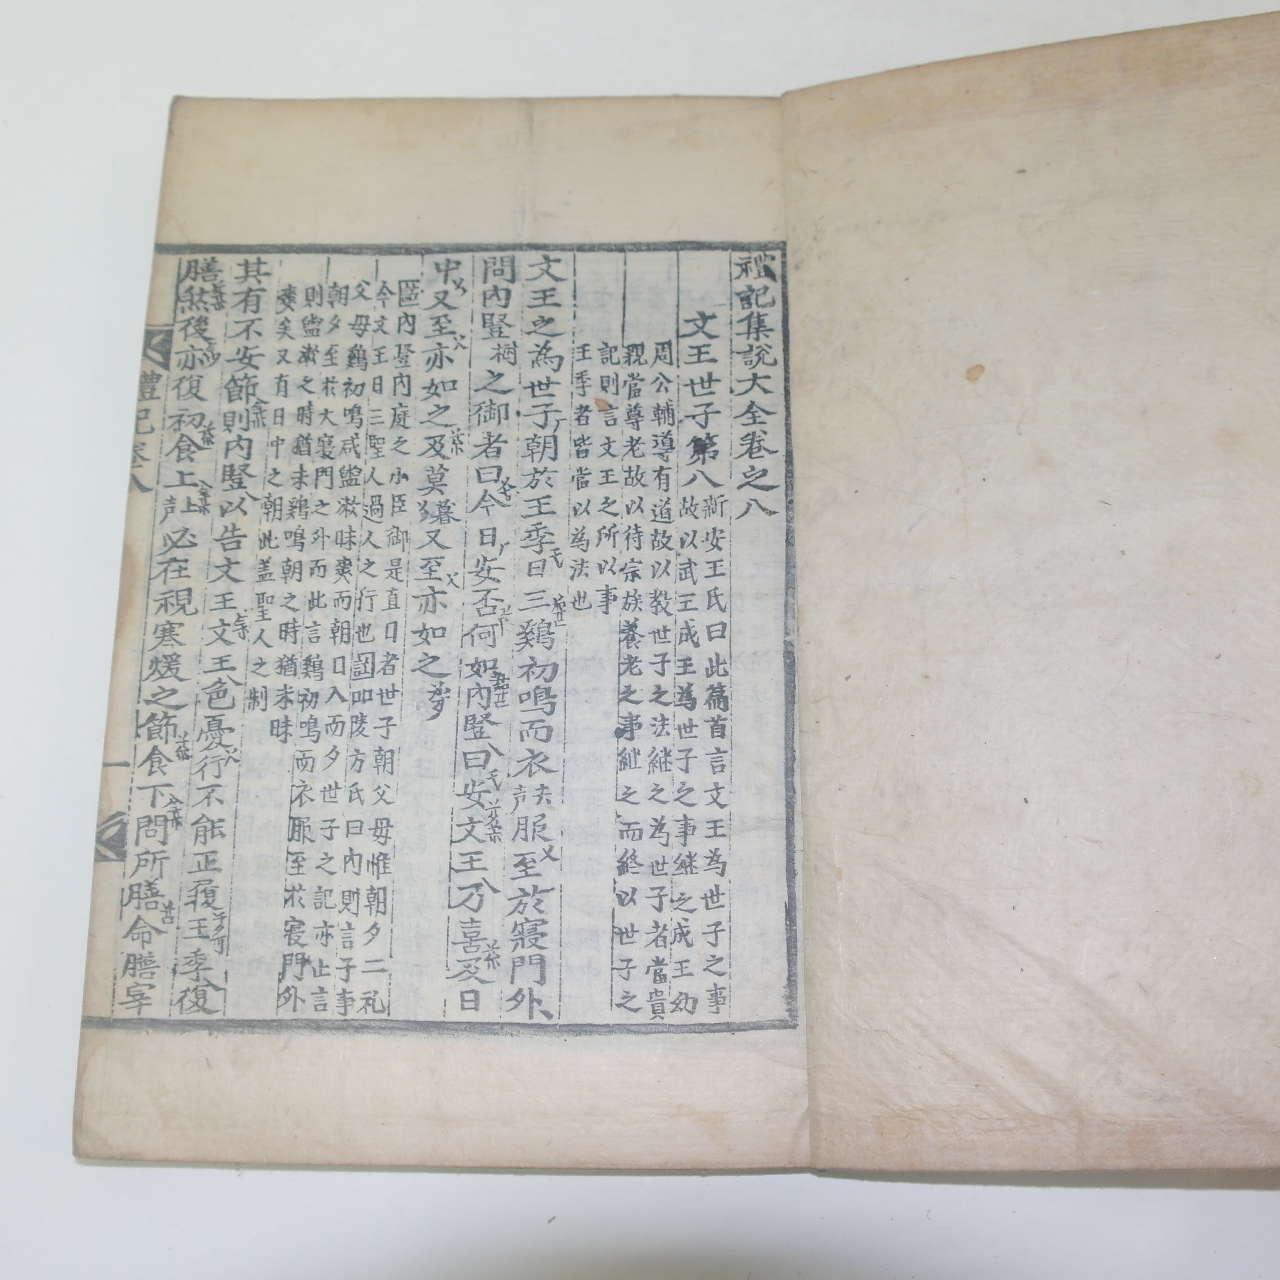 禮記集說大全卷之八
文王世子第八
新安王氏曰此篇首言文王為世子之事
故以武王成王為世子之事継之成王幼
周公輔導有道故以教世子之法継之為世子者當貴
親當尊老故以待宗族養老之事継之而終以世子之
記則言文王之所以事
王季者皆當以為法也
文王之為世子朝於王季日三鷄初鳴而衣去聲服至於寢門外
問內豎樹之御者曰今日安否何如內豎曰安文王乃喜及日
中又至亦如之及莫暮又至亦如之
內豎內庭之小臣御是直日者世子朝父母惟朝夕二礼
今文王日三聖人過人之行也 山陰陸方氏曰內則言子事
父母鷄初鳴咸盥漱昧爽而朝日入而夕世子之記亦止言
朝夕至於大寢門之外而此言鷄初鳴而衣服至於寢門外
則盥漱之時猶未鷄鳴朝之時猶未昧
爽矣又有日中之朝此盖聖人之制
其有不安節則內豎以告文王文王色憂行不能正履王季復
膳然後亦復初食上上聲必在視寒煖之節食下問所膳命膳宰
禮記卷八
一